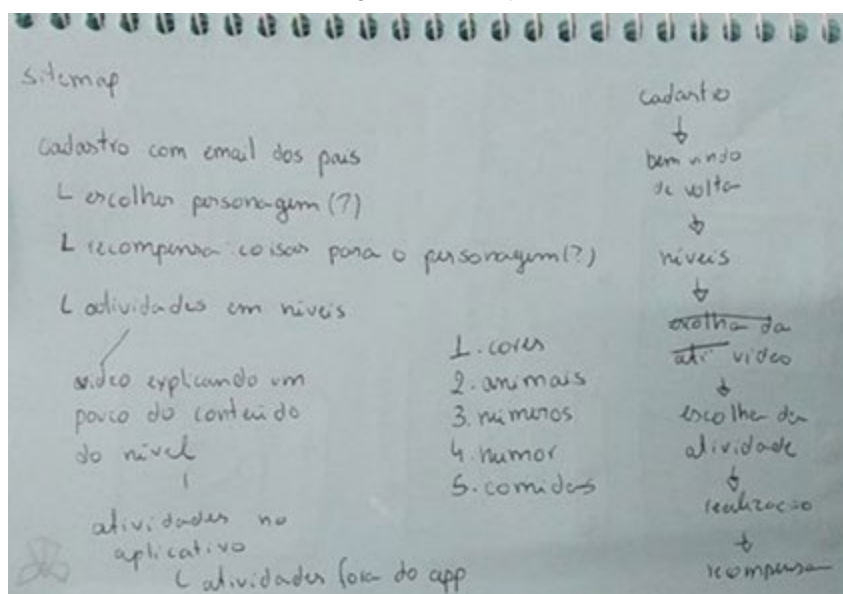 sitemap
cadastro com email dos pais
L escolher personagem (?)
L recompensa coisas para o personagem (?)
L atividades em níveis
video explicando um
pouco do conteúdo
do nível
atividades no
aplicativo
L atividades fora do app
1. cores
2. animais
3. números
4. humor
5. comidas
cadastro
bem vindo
de volta
níveis
escolha da
ati video
escolha da
atividade
realização
recompensa